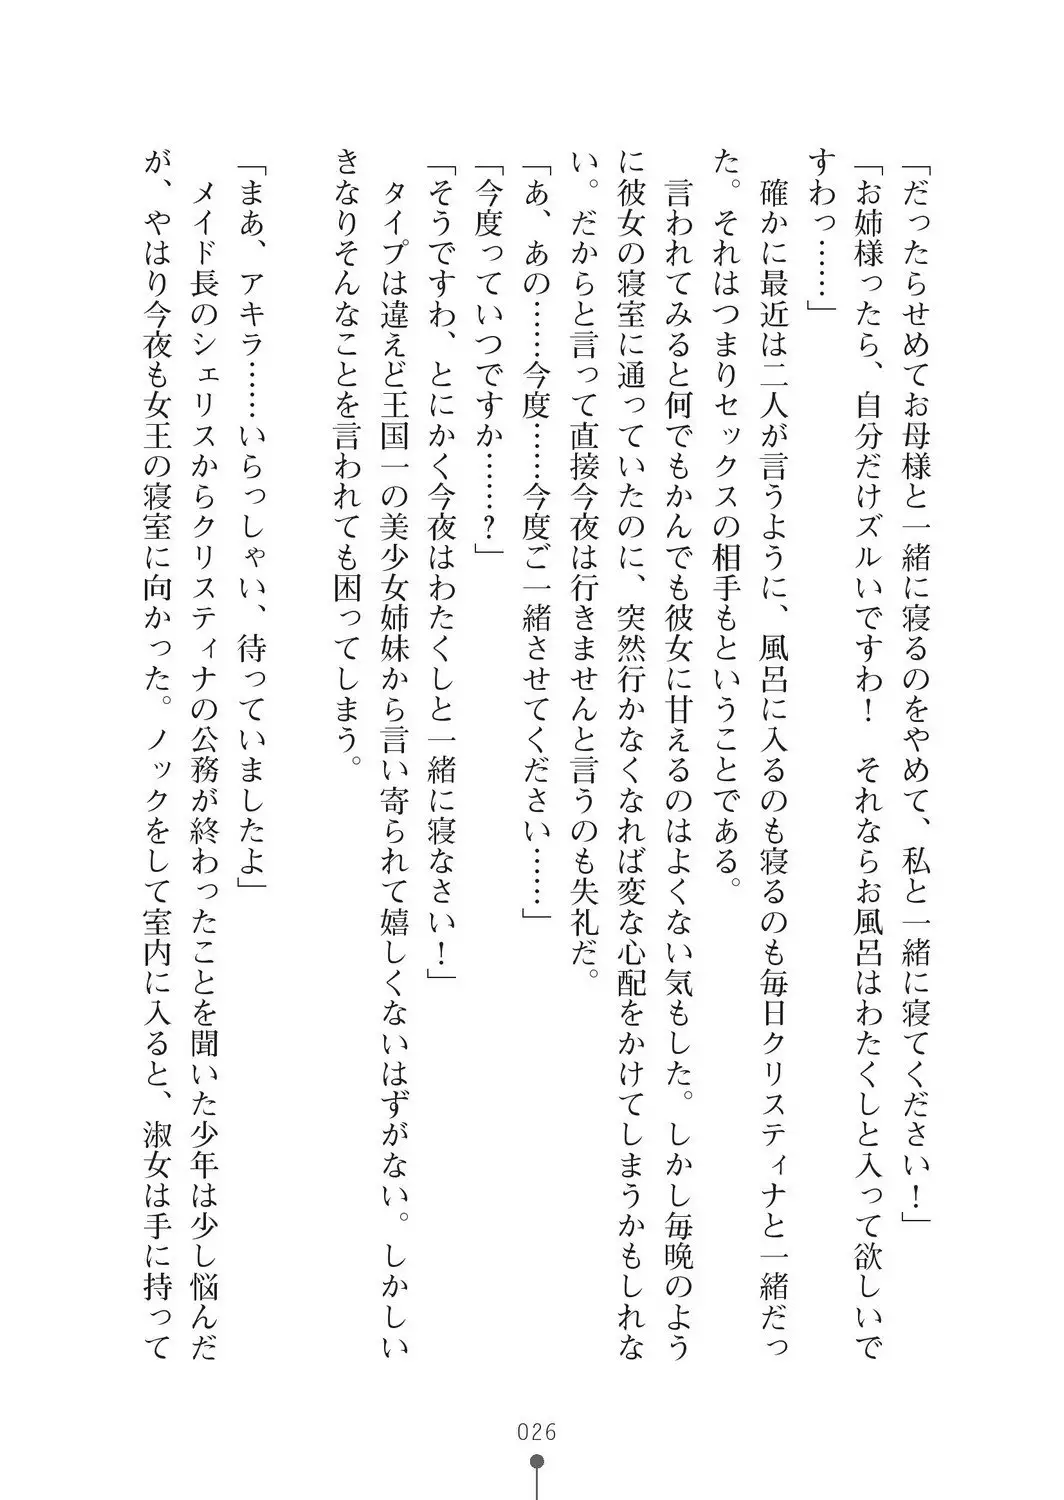 「だったらせめてお母様と一緒に寝るのをやめて、私と一緒に寝てください！」
「お姉様ったら、自分だけズルいですわ！　それならお風呂はわたくしと入って欲しいで
すわっ……」
　確かに最近は二人が言うように、風呂に入るのも寝るのも毎日クリスティナと一緒だっ
た。それはつまりセックスの相手もということである。
　言われてみると何でもかんでも彼女に甘えるのはよくない気もした。しかし毎晩のよう
に彼女の寝室に通っていたのに、突然行かなくなれば変な心配をかけてしまうかもしれな
い。だからと言って直接今夜は行きませんと言うのも失礼だ。
「あ、あの……今度……今度ご一緒させてください……」
「今度っていつですか……？」
「そうですわ、とにかく今夜はわたくしと一緒に寝なさい！」
　タイプは違えど王国一の美少女姉妹から言い寄られて嬉しくないはずがない。しかしい
きなりそんなことを言われても困ってしまう。
「まあ、アキラ……いらっしゃい、待っていましたよ」
　メイド長のシェリスからクリスティナの公務が終わったことを聞いた少年は少し悩んだ
が、やはり今夜も女王の寝室に向かった。ノックをして室内に入ると、淑女は手に持って
026